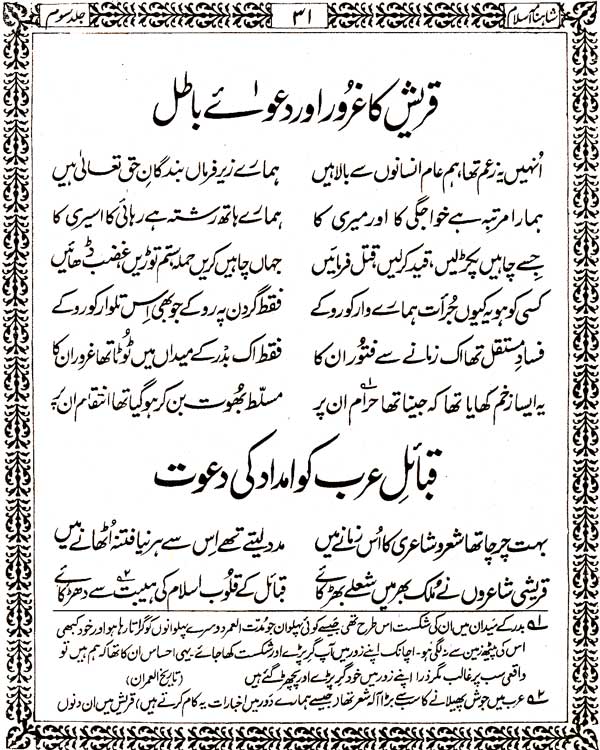 شاہنامہ اسلام ۳۱ جلد سوم
قریش کا غرور اور دعوائے باطل
اُنہیں یہ زعم تھا، ہم عام انسانوں سے بالا ہیں ہمارے زیرِ فرماں بندگانِ حق تعالیٰ ہیں
ہمارا مرتبہ ہے خواجگی کا اور میری کا ہمارے ہاتھ رشتہ ہے رہائی کا اسیری کا
جسے چاہیں پکڑ لیں، قید کر لیں، قتل فرمائیں جہاں چاہیں کریں حملہ، ستم توڑیں، غضب ڈھائیں
کسی کو ہو یہ کیوں جُرأت ہمارے وار کو روکے فقط گردن پہ روکے جو بھی اِس تلوار کو روکے
فسادِ مستقل تھا اک زمانے سے فتُور ان کا فقط اک بدْر کے میداں میں ٹُوٹا تھا غرور ان کا
یہ ایسا زخم کھایا تھا کہ جینا تھا حرام ان پر ؎۱ مسلّط بھُوت بن کر ہو گیا تھا انتقام ان پر
قبائلِ عرب کو امداد کی دعوت
بہت چرچا تھا شعر و شاعری کا اُس زمانے میں مدد لیتے تھے اِس سے ہر نیا فتنہ اُٹھانے میں
قریشی شاعروں نے مُلک بھر میں شعلے بھڑکائے قبائل کے قلُوب اسلام کی ہیبت سے دھڑکائے ؎۲
؎۱ بدر کے میدان میں ان کی شکست اس طرح تھی جیسے کوئی پہلوان جو مدّت العمر دوسرے پہلوانوں کو گراتا رہا ہو اور خود کبھی
اس کی پیٹھ زمین سے نہ لگی ہو۔ اچانک اپنے زور میں آپ گر پڑے اور شکست کھا جائے۔ یہی احساس ان کا تھا کہ ہم ہیں تو
واقعی سب پر غالب مگر ذرا اپنے زور میں خود گر پڑے اور پچھڑ گئے ہیں (تاریخ العمران)
؎۲ عرب میں جوش پھیلانے کا سب سے بڑا آلہ شعر تھا (جیسے ہمارے دَور میں اخبارات یہ کام کرتے ہیں) قریش میں ان دنوں